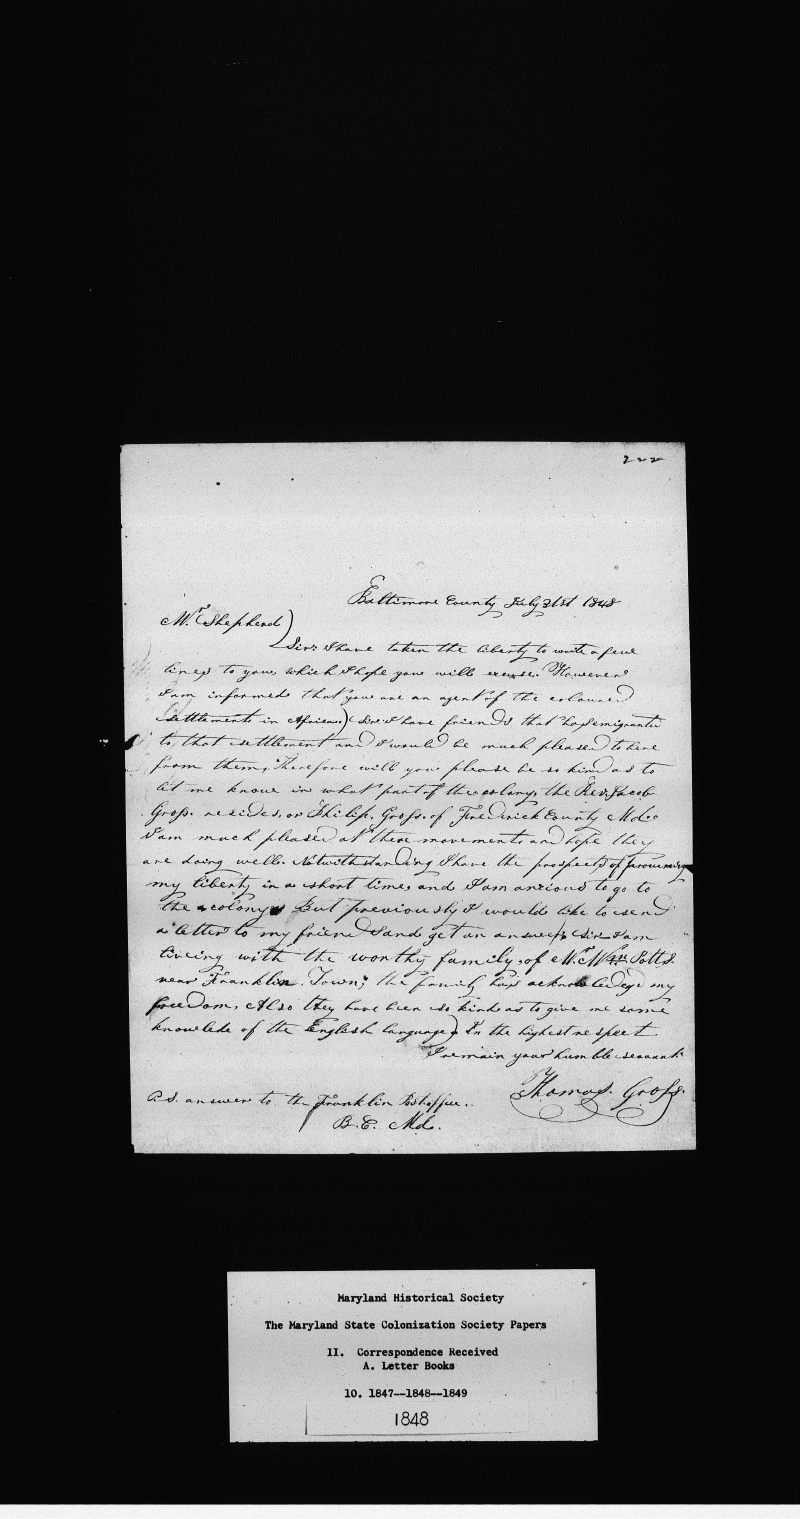 222
Baltimore County July 31st 1848
Mr. Shepherd)
Sir: I have taken the liberty to write a few
lines to you, which I hope you will excuse. However
I am informed that you are an agent of the coloured
settlements in Africa.) Sir I have friends that has emigrated
to that settlement and I would be much pleased to here
from them. Therefore will you please be so kind as to
let me know in what part of the colony, the Rev. Jacob
Gross. resides, or Philip. Gross. of Frederick County Md.
I am much pleased at these movements and hope they
are doing well. Notwithstanding I have the prospects of procuring
my liberty in a short time, and I am anxious to go to
the colony. But previously I would like to send
a letter to my friends and get an answer. Sir I am
liveing with the worthy family, of Mr. Wm. Potts.
near Franklin. Town; the family has acknowledge my
freedom, Also they have been so kind as to give me some
knowlede of the English language) In the highest respect
I remain your humble servant
Thomas. Gross.
P.S. answer to the Franklin
B.C. Md.
Maryland Historical Society
The Maryland State Colonization Society Papers
II. Correspondence Received
A. Letter Books
10. 1847--1848--1849
1848